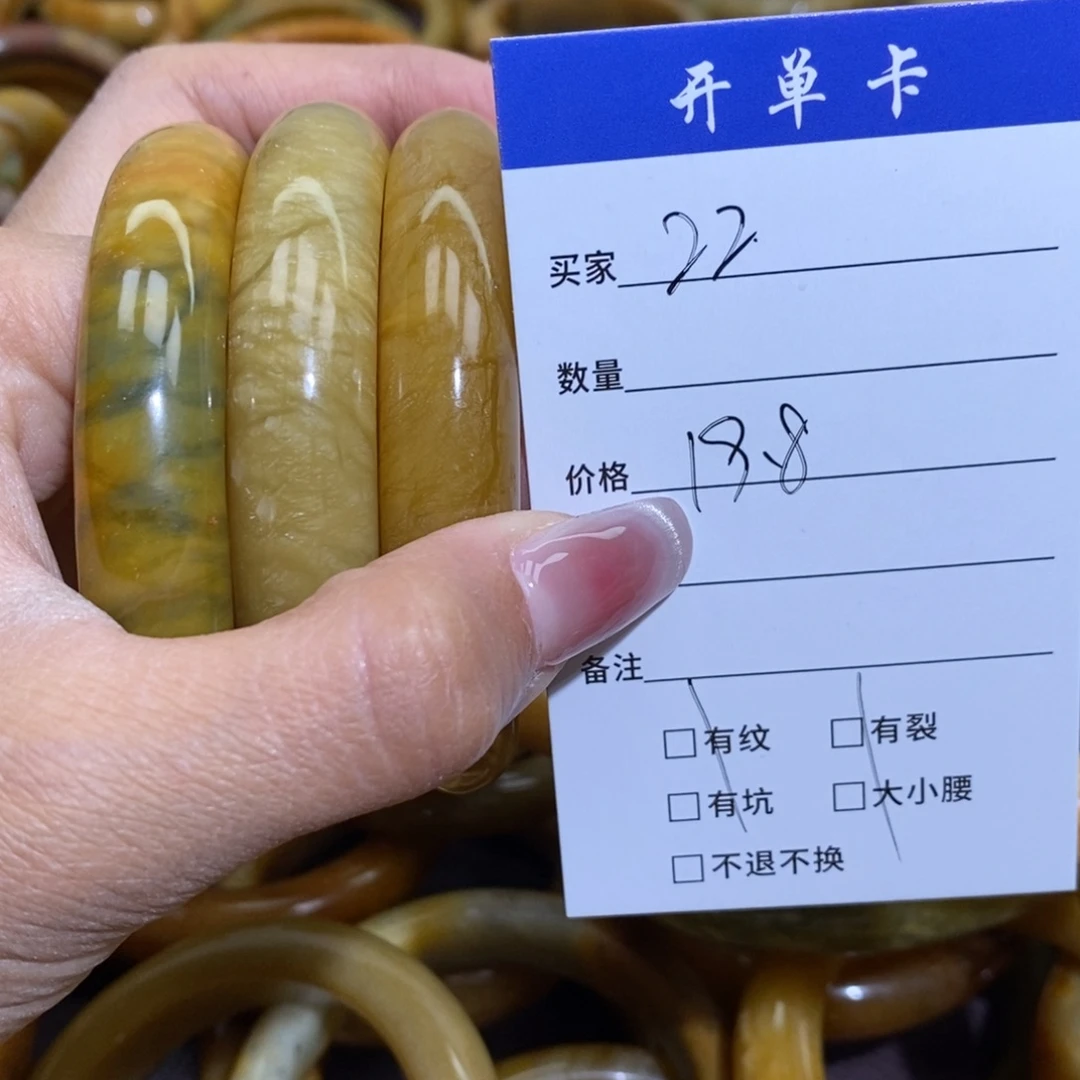 开单卡
买家 22
数量
价格 19.8
备注
□有纹 □有裂
□有坑 □大小腰
□不退不换